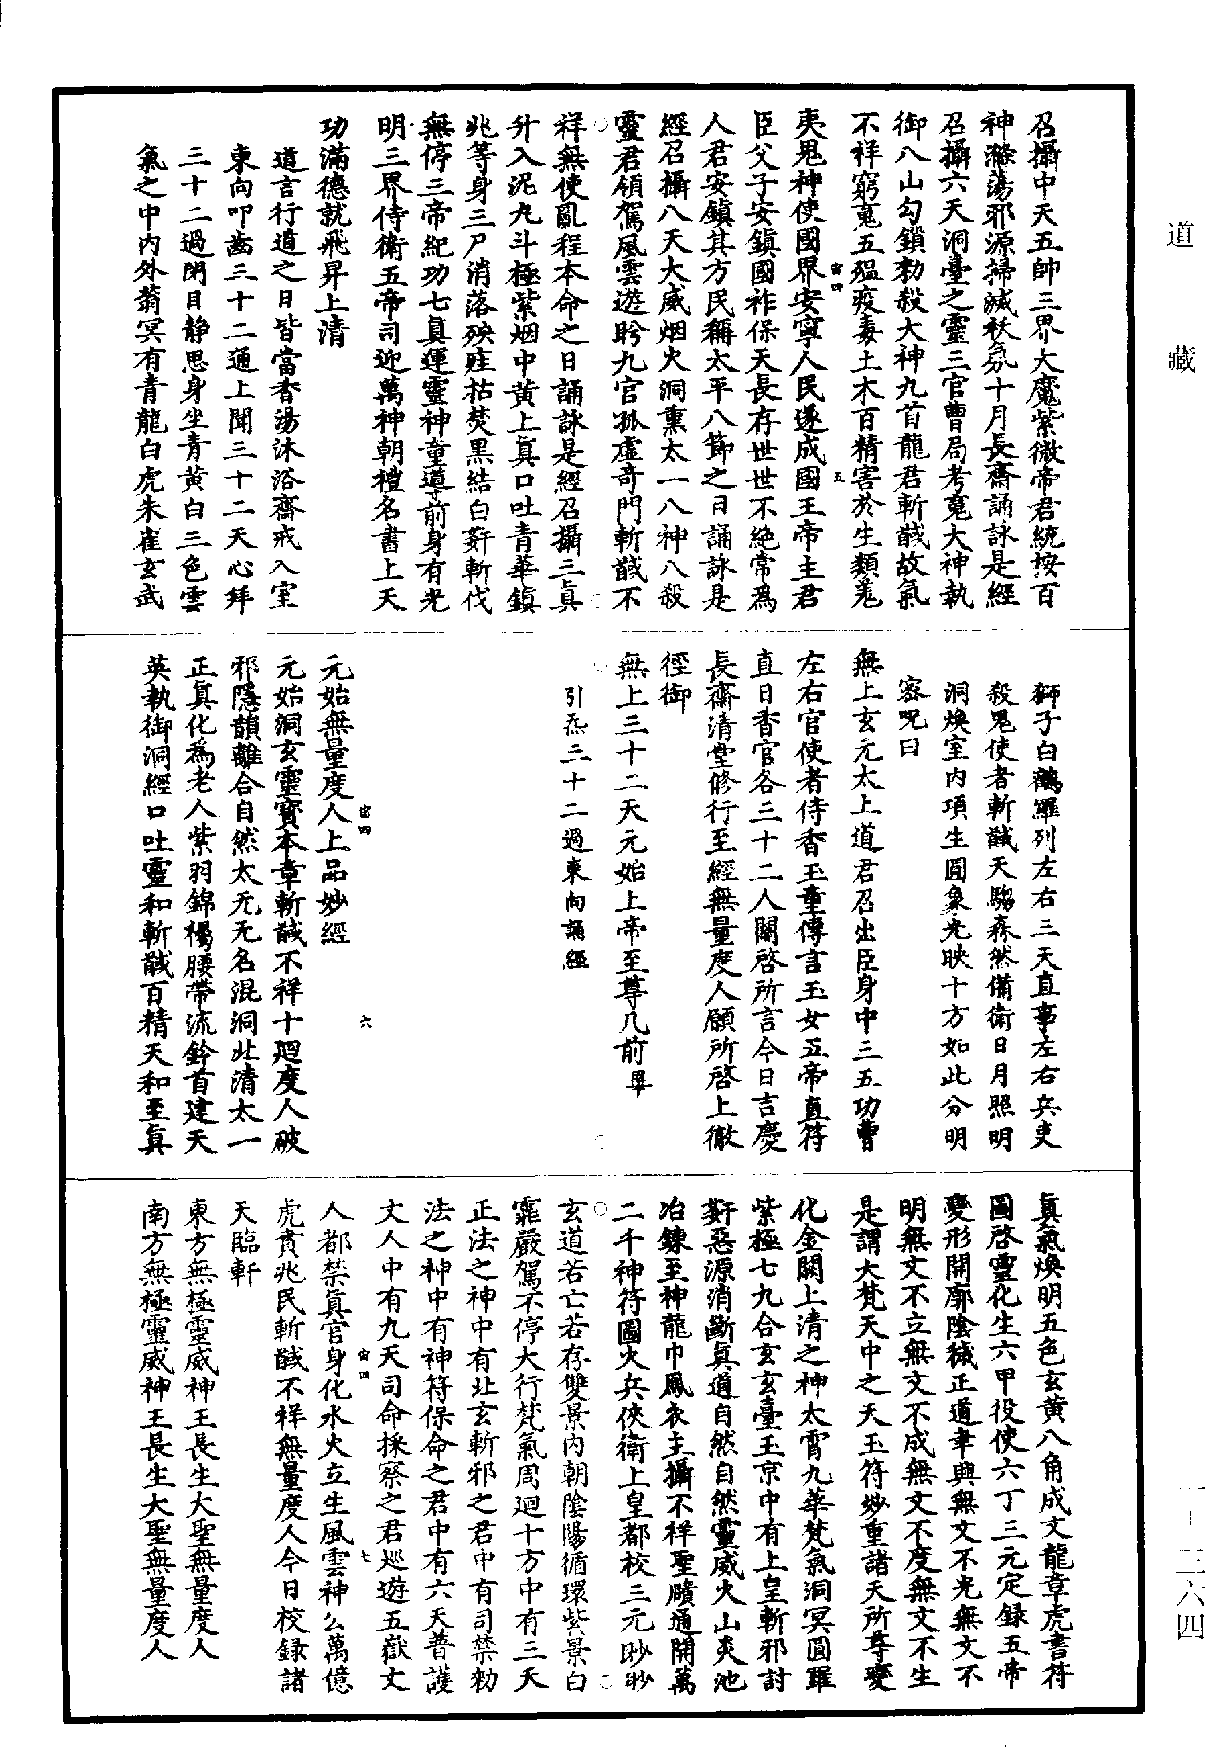 道藏
召攝中天五帥三界大魔紫微帝君統按百
神滌蕩邪源掃滅秋氛十月長齋誦詠是經
召攝六天洞臺之靈三官曹局考鬼大神執
御八山勾鎖勑殺大神九首龍君斬馘故氣
不祥窮鬼五瘟疫毒土木百精害於生類羌
夷鬼神使國界安寧人民遂成國王帝主君
宙四
五
臣父子安鎮國祚保天長存世世不絶常爲
人君安鎮其方民稱太平八節之日誦詠是
經召攝八天大威烟火洞熏太一八神八殺
靈君領駕風雲遊盻九宫孤虚奇門斬馘不
祥無使亂程本命之日誦詠是經召攝三眞
升入泥丸斗極紫烟中黄上眞口吐青華鎮
兆等身三尸消落殃註枯焚黑結白姧斬伐
無停三帝紀功七眞運靈神童導前身有光
明三界侍衛五帝司迎萬神朝禮名書上天
功滿德就飛昇上清
道言行道之日皆當香湯沐浴齋戒入室
東向叩齒三十二通上聞三十二天心拜
三十二過閉目靜思身坐青黄白三色雲
氣之中内外蓊冥有青龍白虎朱雀玄武
獅子白鶴羅列左右三天直事左右兵吏
殺鬼使者斬馘天騶森然備衛日月照明
洞煥室内項生圓象光映十方如此分明
密呪曰
無上玄元太上道君召出臣身中三五功曹
左右官使者侍香玉童傳言玉女五帝直符
直日香官各三十二人關啓所言今日吉慶
長齋清堂修行至經無量度人願所啓上徹
徑御
無上三十二天元始上帝至尊几前畢
引炁三十二過東向誦經
元始無量度人上品妙經
宙四
六
元始洞玄靈寳本章斬馘不祥十廻度人破
邪隱韻離合自然太无无名混洞北清太一
正眞化爲老人紫羽錦褐腰帶流鈴首建天
英執御洞經口吐靈和斬馘百精天和至眞
眞氣煥明五色玄黄八角成文龍章虎書符
圖啓靈化生六甲役使六丁三元定錄五帝
變形開廓陰穢正道聿興無文不光無文不
明無文不立無文不成無文不度無文不生
是謂大梵天中之天玉符妙重諸天所尊變
化金闕上清之神太霄九華梵氣洞冥圓羅
紫極七九合玄玄臺玉京中有上皇斬邪討
姧惡源消斷眞道自然自然靈威火山炎池
冶鍊至神龍巾鳳衣主攝不祥聖牘通開萬
二千神符圖火兵俠衛上皇都校三元眇眇
玄道若亡若存雙景内朝陰陽循環紫景白
霏嚴駕不停大行梵氣周迴十方中有三天
正法之神中有北玄斬邪之君中有司禁勑
法之神中有神符保命之君中有六天普護
文人中有九天司命採察之君巡遊五嶽丈
人都禁眞官身化水火立生風雲神公萬億
宙四
七
虎賁兆民斬馘不祥無量度人今日校錄諸
天臨軒
東方無極靈威神王長生大聖無量度人
南方無極靈威神王長生大聖無量度人
一-三六四